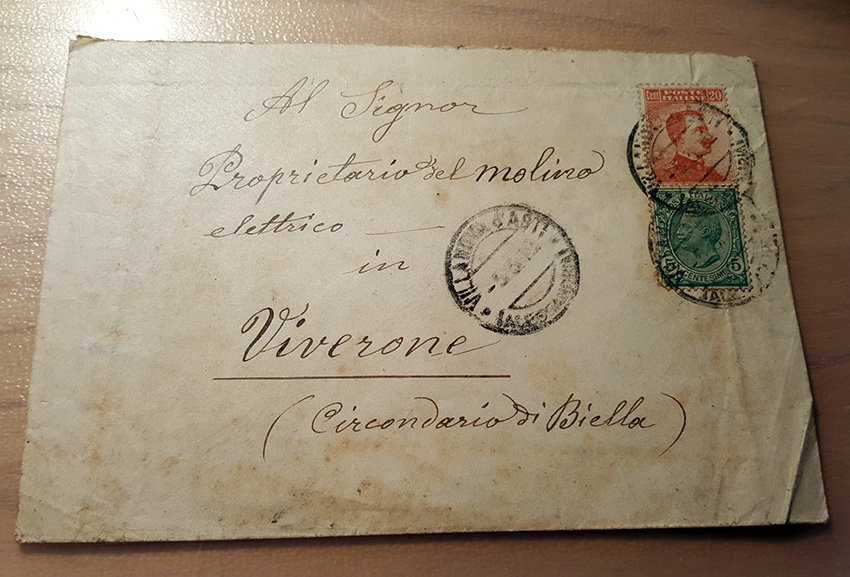 Al Signor
Proprietario del molino
elettrico
in
Viverone
(Circondario di Biella)
Cent POSTE ITALIANE 20
5
CENTESIMI
VILLANOVA D'ASTI
(ALESSANDRIA)